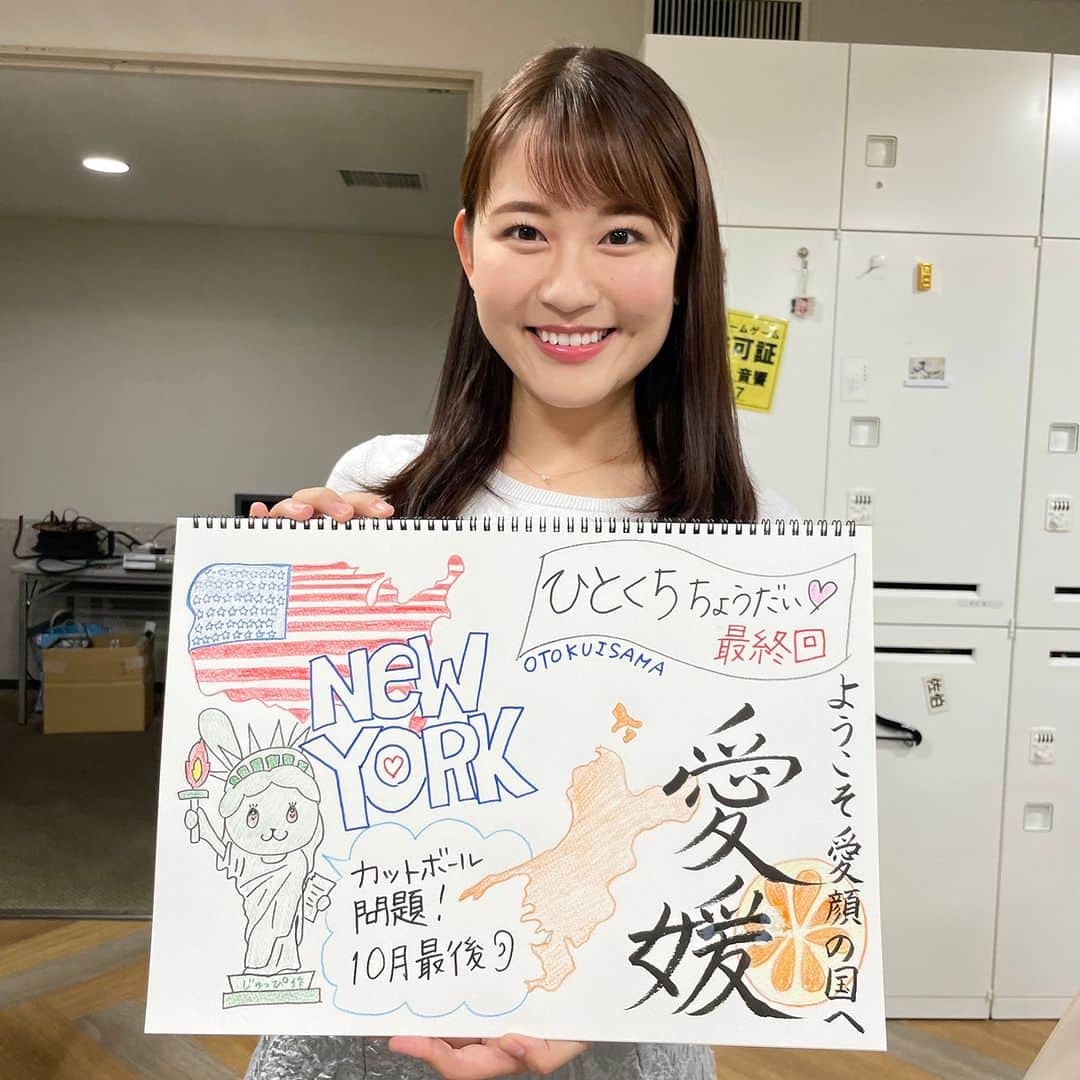 NEW
YORK
カットボール
問題!
10月最後
じゅっぴ作
ひとくちちょうだい♡
最終回
OTOKUISAMA
愛媛
ようこそ愛顔の国へ
ームゲーム
可証
音響
7
佐柏